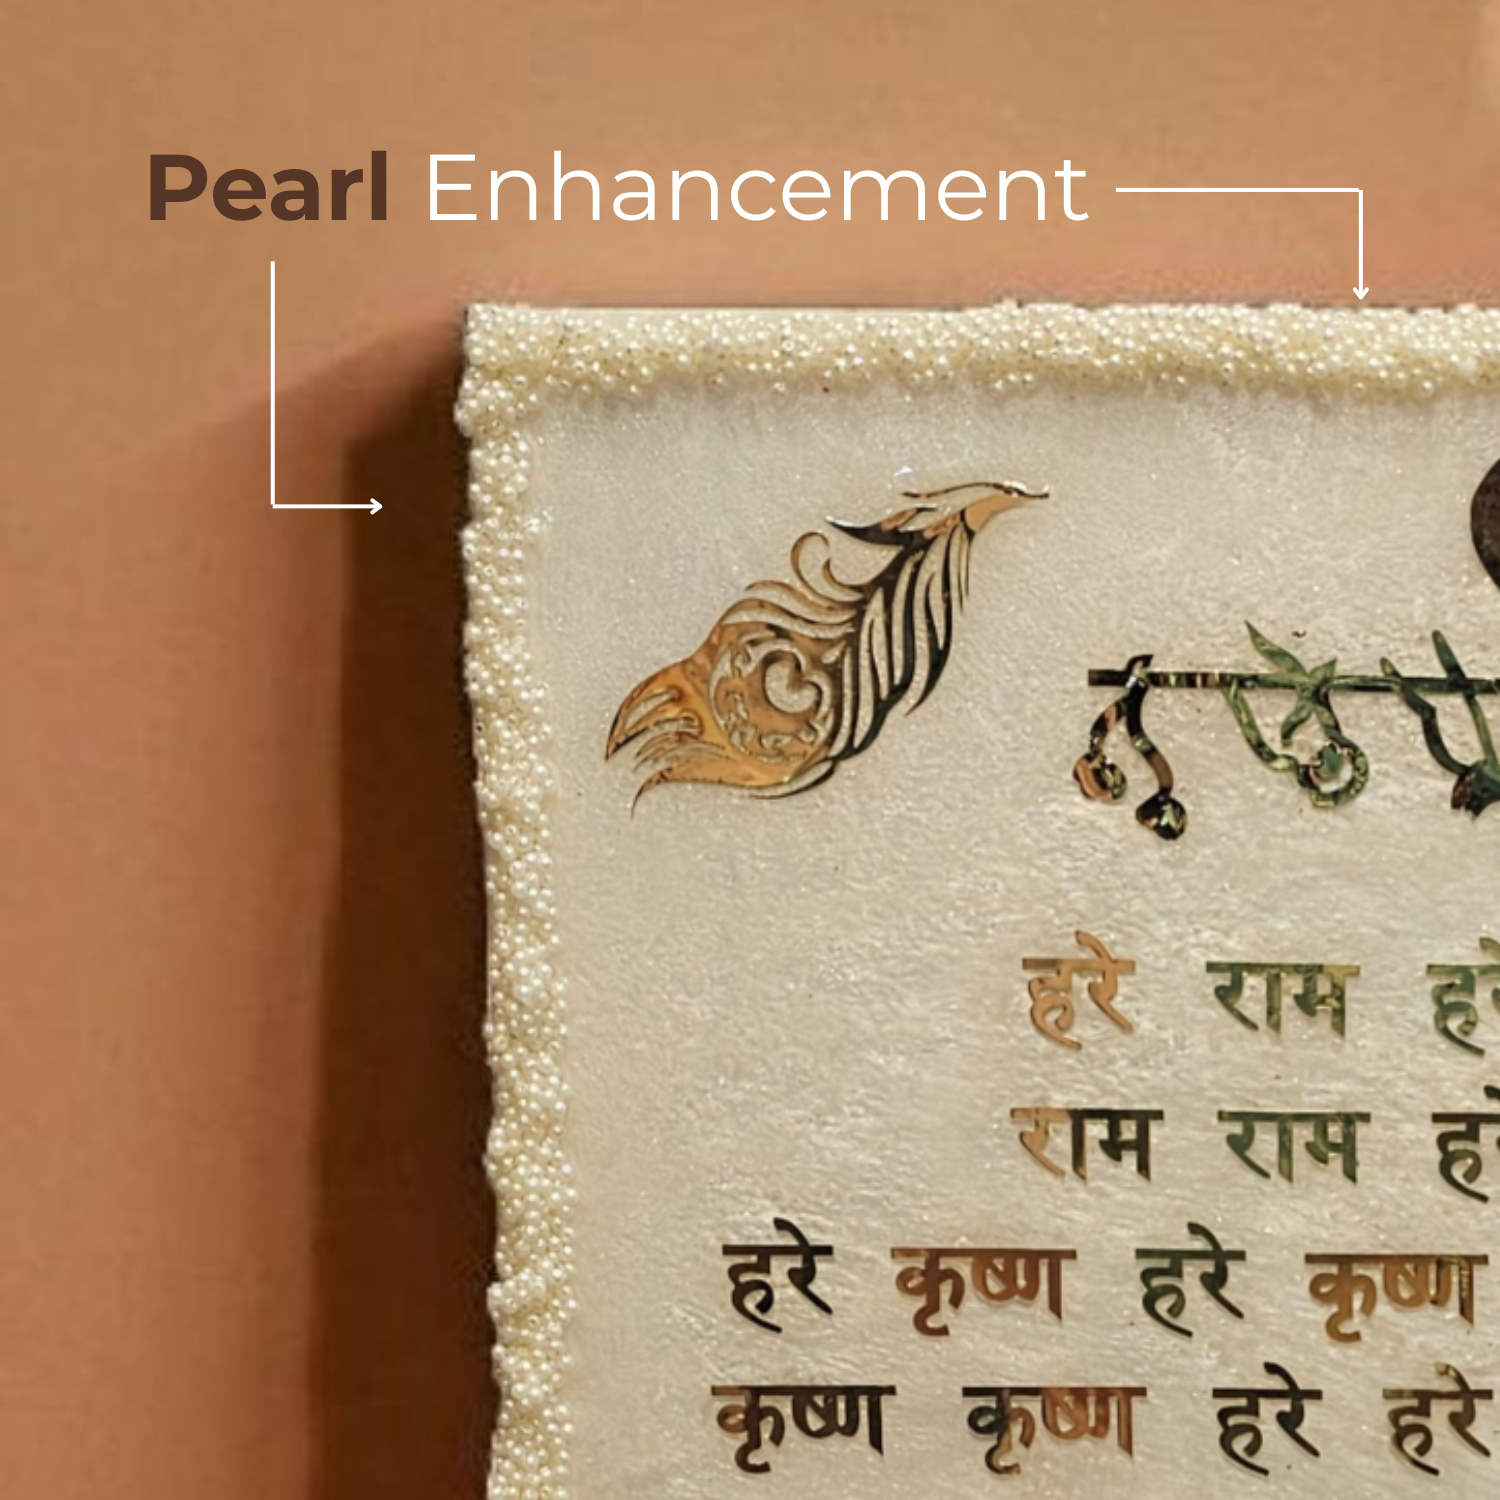 Pearl Enhancement
हरे राम
राम राम
हरे कृष्ण हरे कृष्ण
कृष्ण कृष्ण हरे हरे